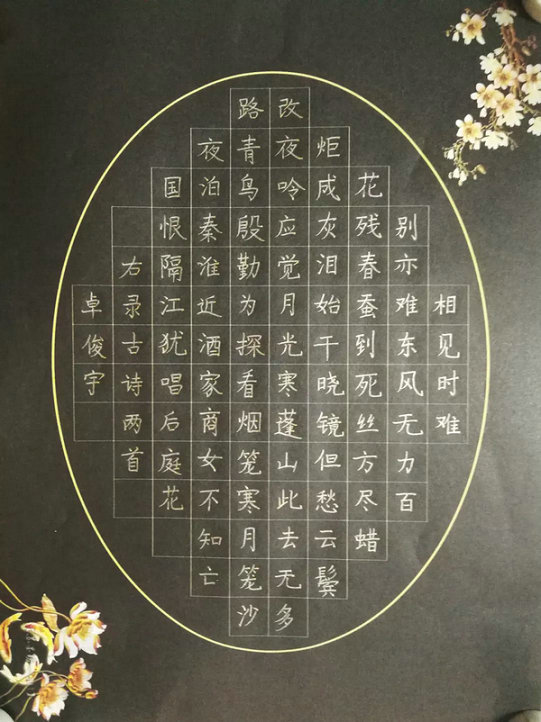 相见时难
别亦难东风无力百
花残春蚕到死丝方尽蜡
炬成灰泪始干晓镜但愁云鬓
改夜吟应觉月光寒蓬山此去无多
路青鸟殷勤为探看烟笼寒月笼沙
夜泊秦淮近酒家商女不知亡
国恨隔江犹唱后庭花
右录古诗两首
卓俊宇